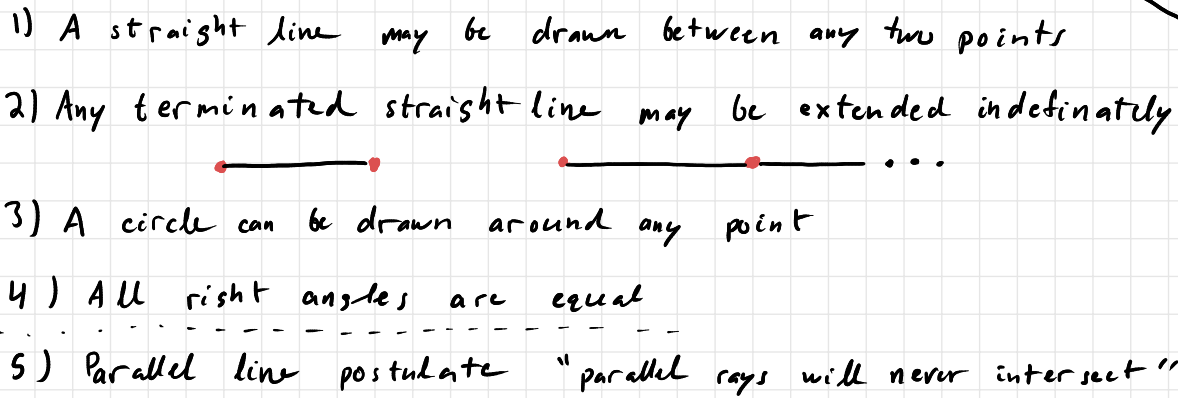 1) A straight line may be drawn between any two points
2) Any terminated straight line may be extended indefinately
3) A circle can be drawn around any point
4) All right angles are equal
5) Parallel line postulate "parallel rays will never intersect"